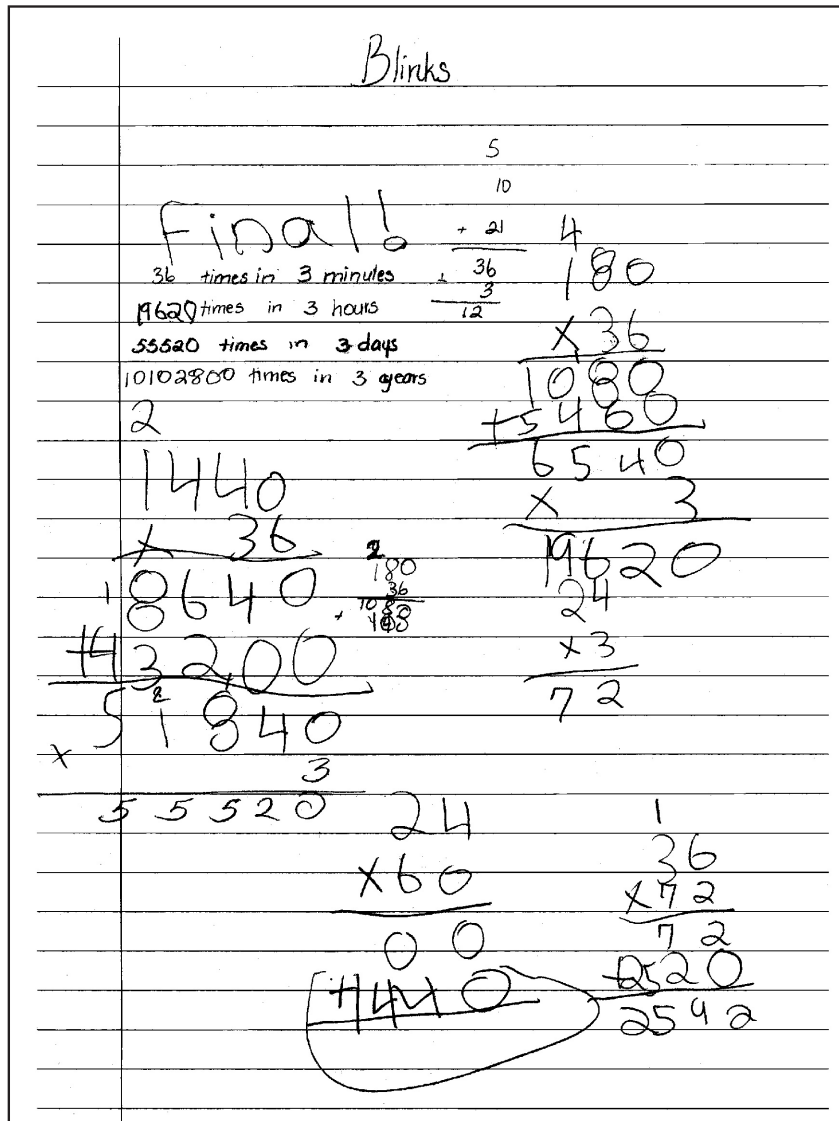 Blinks
Final!
36 times in 3 minutes
19620 times in 3 hours
55520 times in 3 days
10102800 times in 3 years
5
10
+ 21
36
÷ 3
12
4
180
x 36
1080
+ 5460
6540
x 3
19620
24
x 3
72
2
1440
x 36
1
8640
+ 43200
2
51840
x 3
55520
2
180
36
1080
+
24
x 60
00
+ 1440
1
36
x 72
72
+ 2520
2592